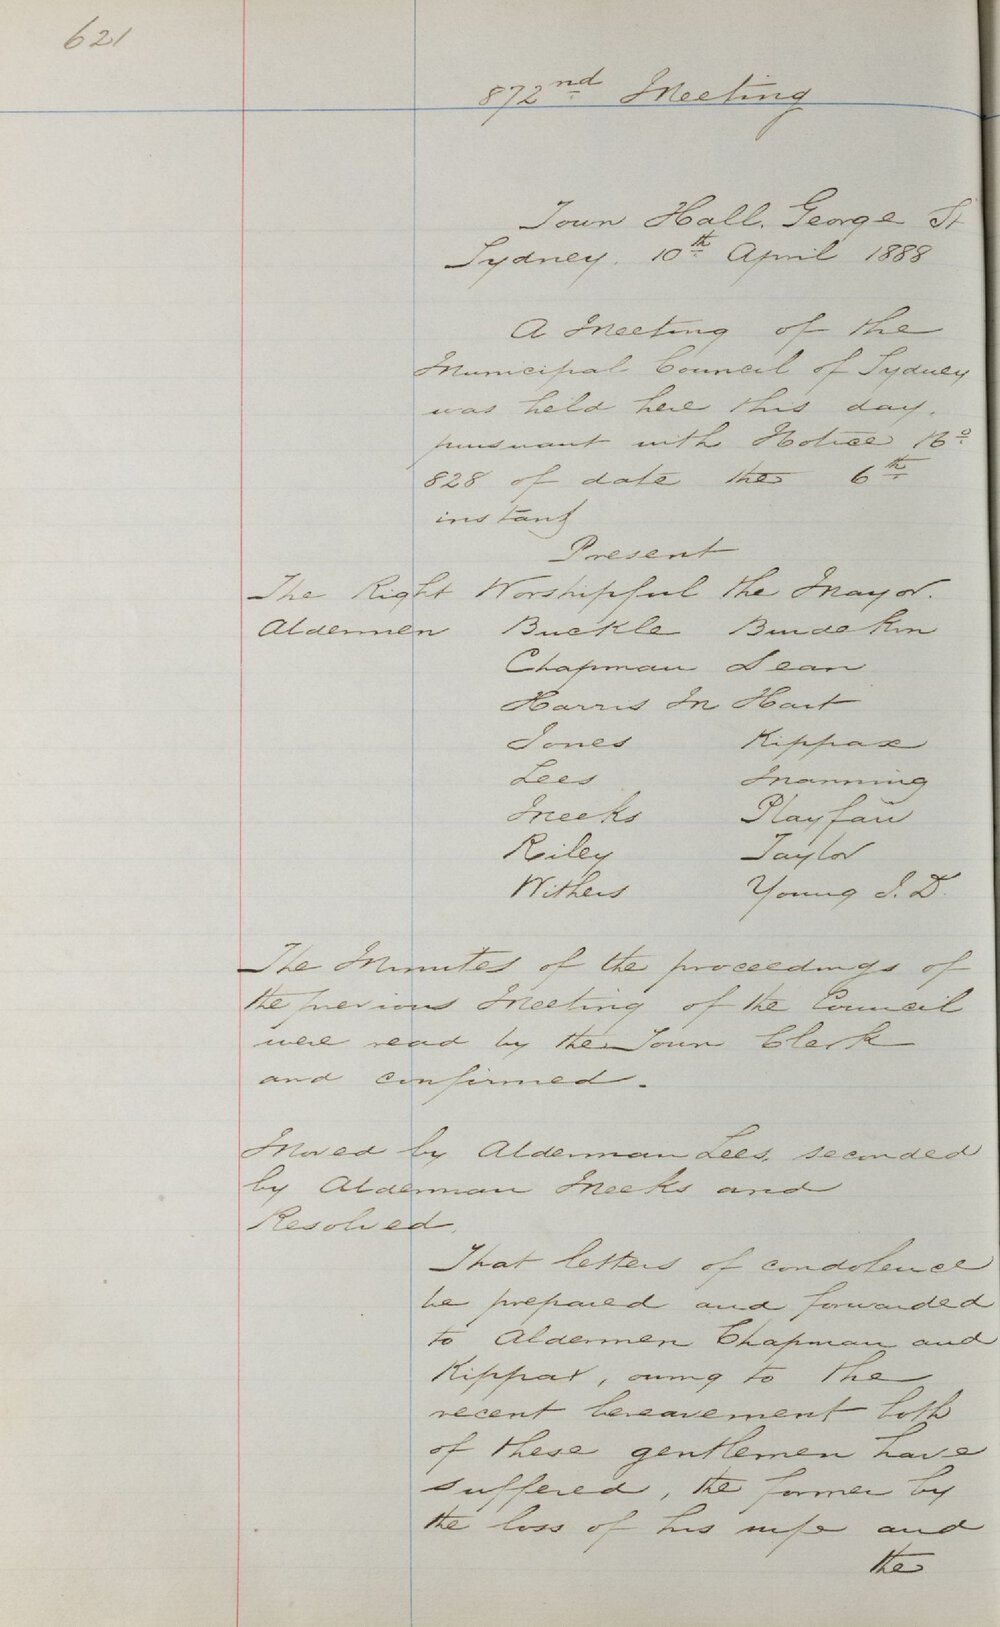 621
872nd Meeting
Town Hall. George St
Sydney. 10th April 1888
A Meeting of the
Municipal Council of Sydney
was held here this day,
pursuant with Notice No
828 of date the 6th
instant
Present
The Right Worshipful the Mayor.
Aldermen Buckle Burdekin
Chapman Dean
Harris M Hart
Jones Kippax
Lees Manning
Meeks Playfair
Riley Taylor
Withers Young J. D.
The Minutes of the proceedings of
the previous Meeting of the Council
were read by the Town Clerk
and confirmed.
Moved by Alderman Lees, seconded
by Alderman Meeks and
Resolved.
That letters of condolence
be prepared and forwarded
to Aldermen Chapman and
Kippax, owing to the
recent bereavement both
of these gentlemen have
suffered, the former by
the loss of his wife and
the